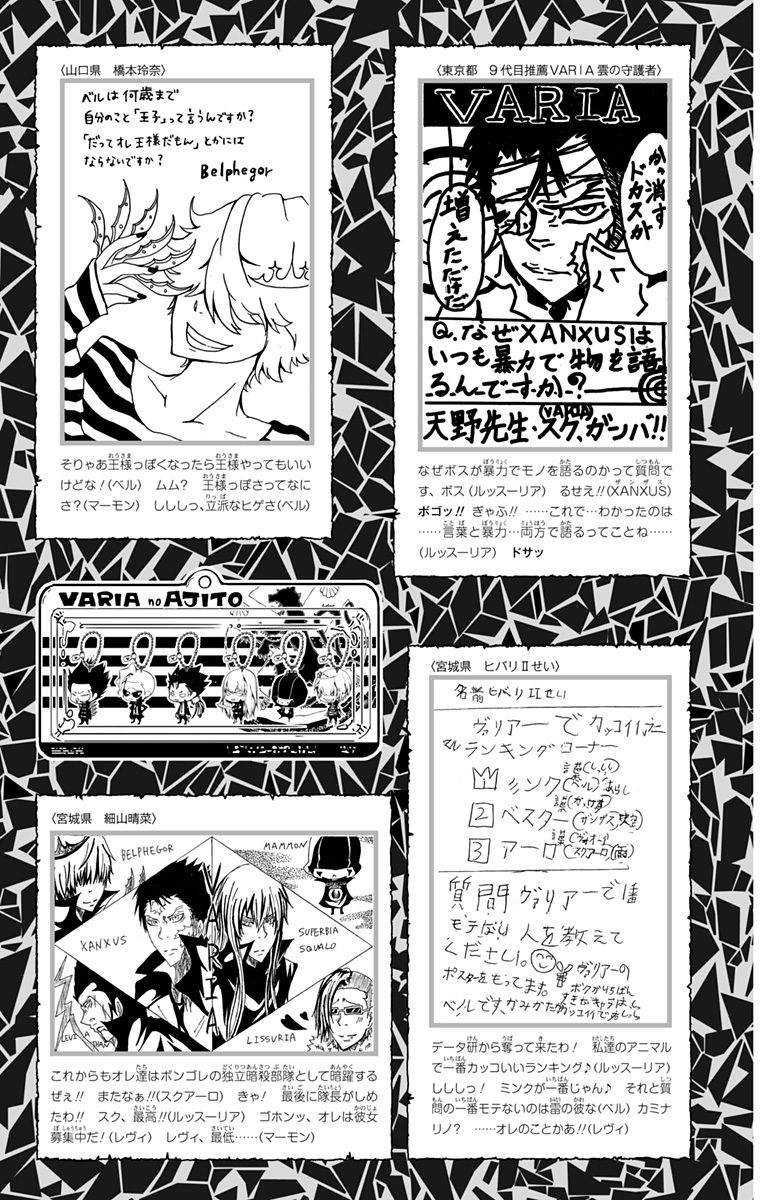 〈東京都　９代目推薦ＶＡＲＩＡ雲の守護者〉
VARIA
かっ消す
ドカスが
増えただけだ
Q.なぜXANXUSは
いつも暴力で物を語
るんでーすか？
天野先生・スク、ガンバ!!
(VARIA)
なぜボスが暴力でモノを語るのかって質問で
す、ボス（ルッスーリア）　るせえ!!（XANXUS）
ボゴッ!!　ぎゃふ!!　……これで…わかったのは
……言葉と暴力…両方で語るってことね……
（ルッスーリア）　ドサッ
〈山口県　橋本玲奈〉
ベルは何歳まで
自分のこと「王子」って言うんですか？
「だってオレ王様だもん」とかには
ならないですか？
Belphegor
そりゃあ王様っぽくなったら王様やってもいい
けどな！（ベル）　ムム？　王様っぽさってなに
さ？（マーモン）　しししっ、立派なヒゲさ（ベル）
VARIA no AJITO
〈宮城県　ヒバリⅡせい〉
名前ヒバリⅡせい
ヴァリアーでカッコイイ
ランキングコーナー
ミンク(ベル)あらし
2 ベスター(ザンザス)
3 アーロ(スクアーロ)(雨)
質問ヴァリアーで1番
モテない人を教えて
ください。
ヴァリアーの
ポスターをもってます。
データ研から奪って来たわ！　私達のアニマル
で一番カッコいいランキング♪（ルッスーリア）
しししっ！　ミンクが一番じゃん♪　それと質
問の一番モテないのは雷の彼な（ベル）　カミナ
リノ？　……オレのことかあ!!（レヴィ）
〈宮城県　細山晴菜〉
BELPHEGOR
MAMMON
XANXUS
VARIA
SUPERBIA
SQUALO
LEVI
LISSURIA
これからもオレ達はボンゴレの独立暗殺部隊として暗躍する
ぜぇ!!　またなぁ!!（スクアーロ）　きゃ！　最後に隊長がしめ
たわ!!　スク、最高!!（ルッスーリア）　ゴホンッ、オレは彼女
募集中だ！（レヴィ）　レヴィ、最低……（マーモン）